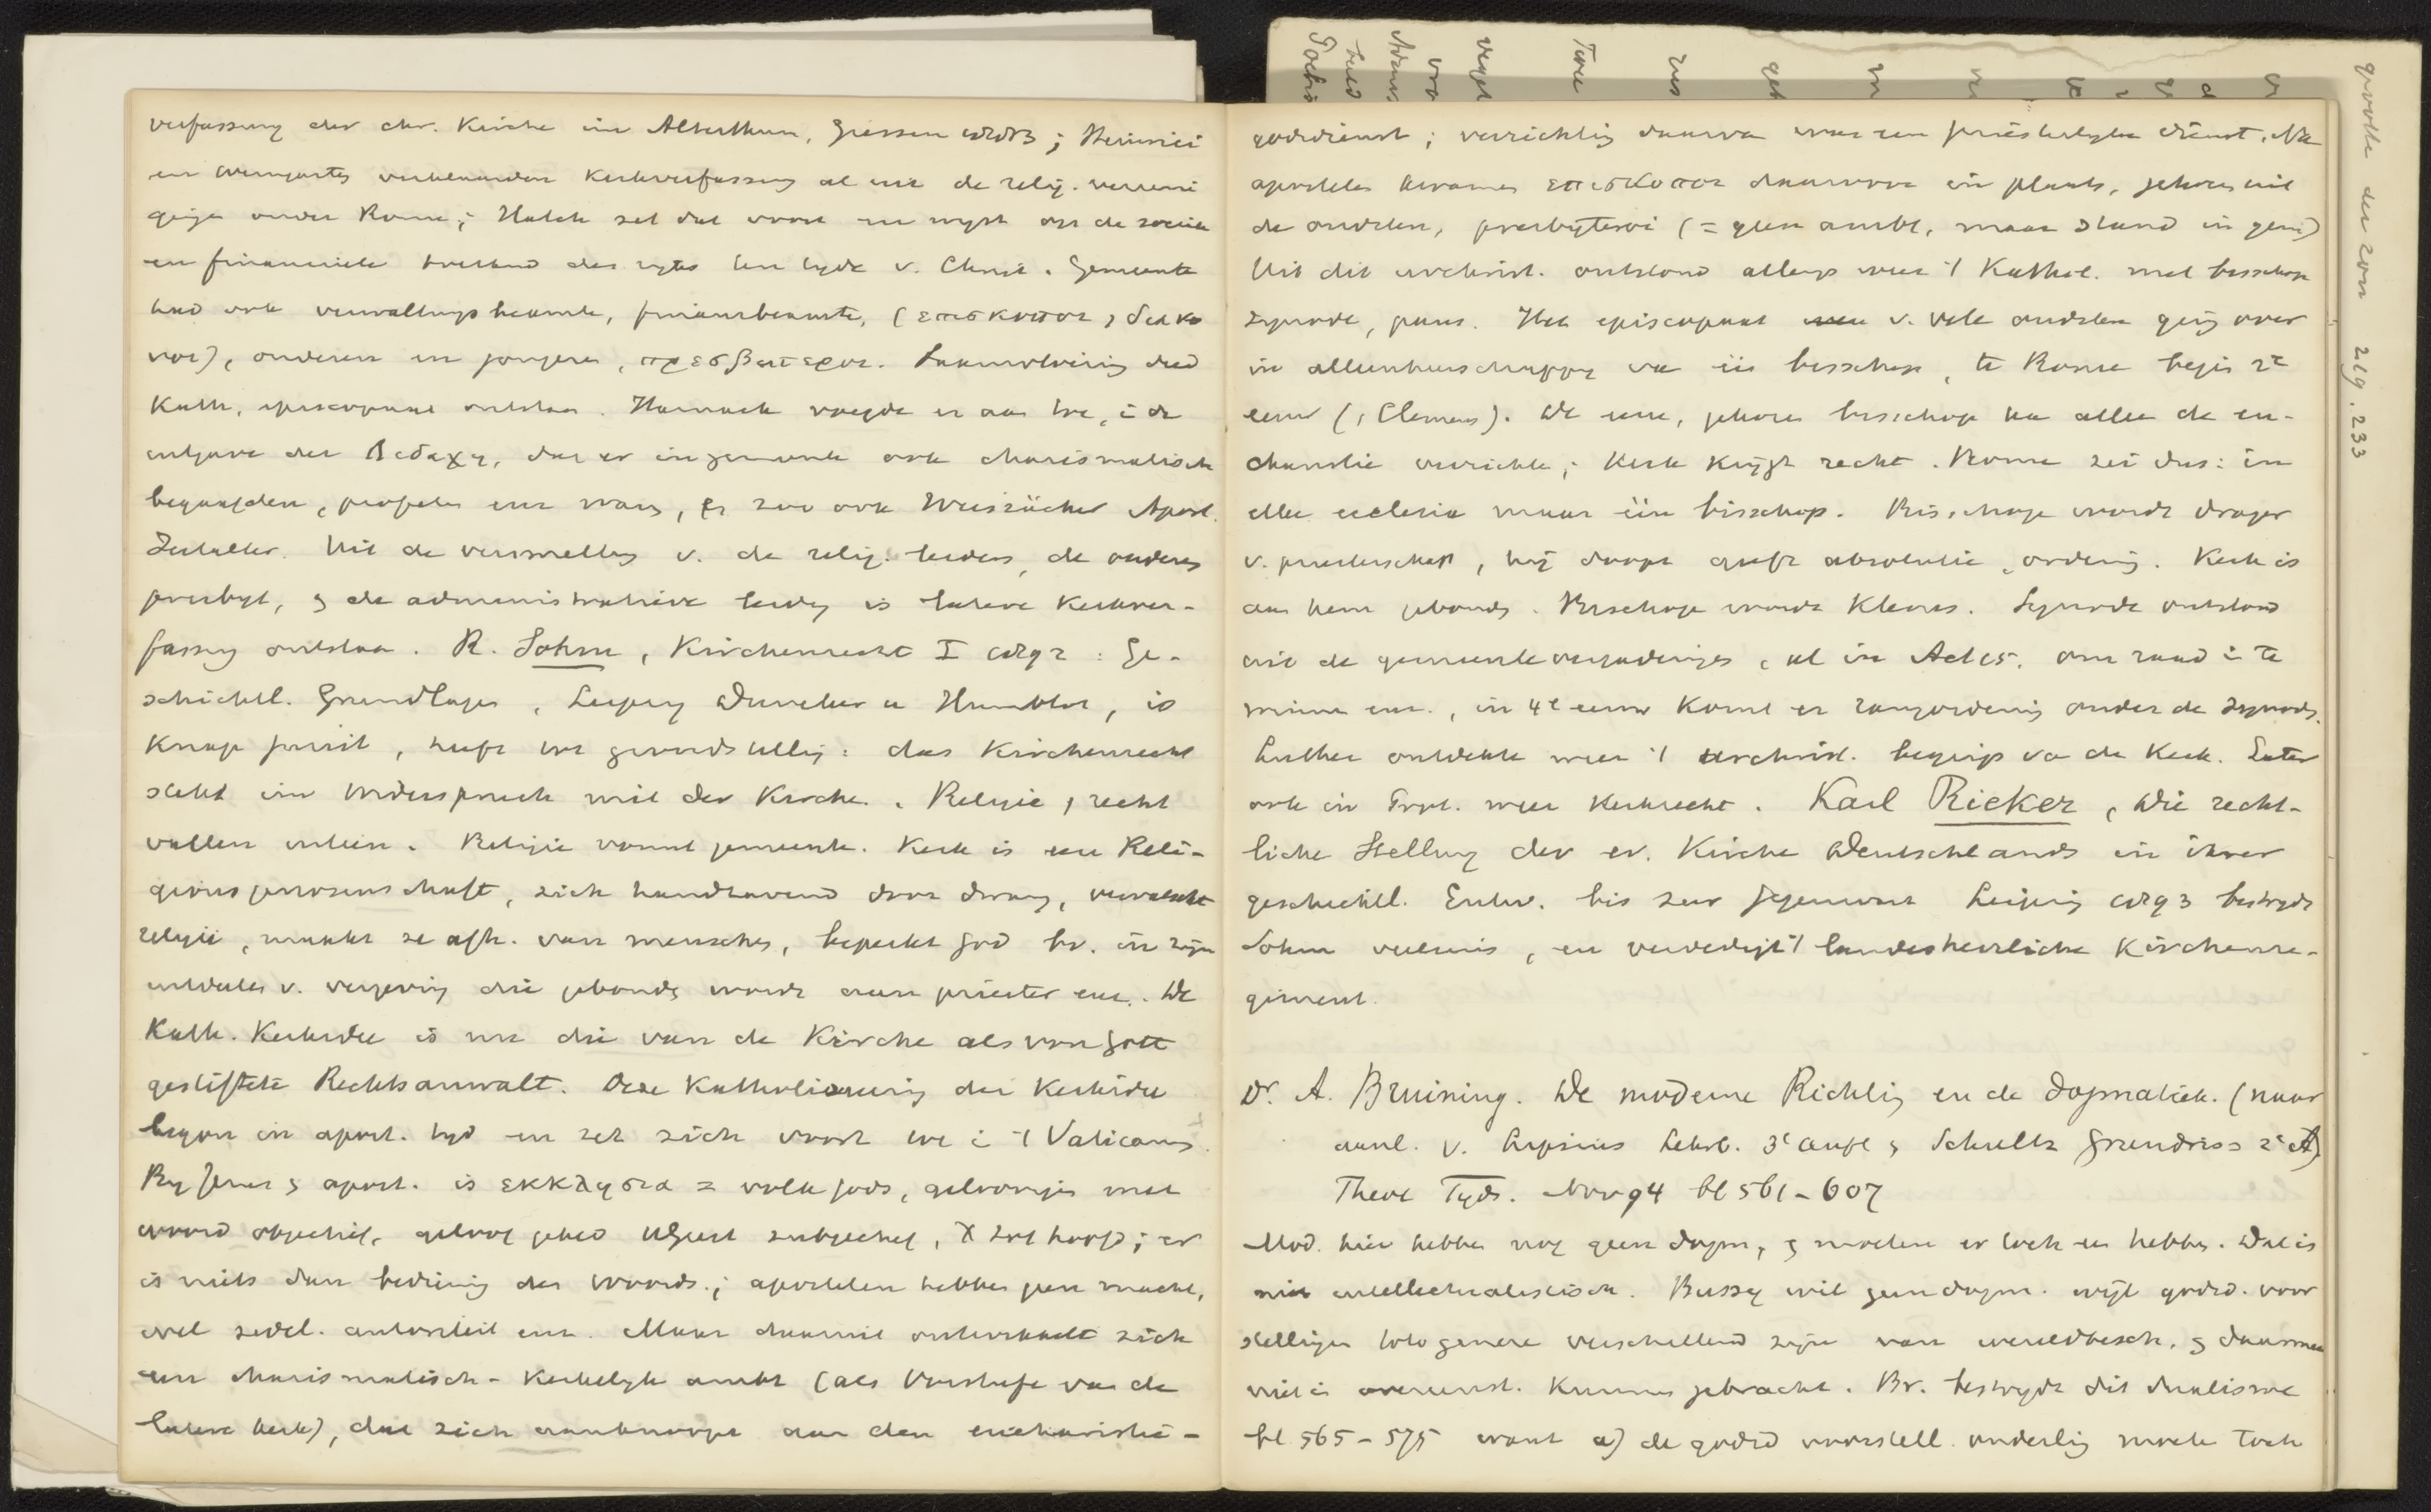 verfassung der chr. Kirche im Alterthum, Giessen 1883; Heinrici
en Weingarten verklaarden Kerkverfassung al uit de relig. vereni
gingen onder Rome; Hatch zet dat voort en wijst op de sociale
en financieele toestand des rijks ten tijde v. Christ. Gemeente
had ook verwaltungsbeamte, finanzbeamte, (επισκοποι, διακο
νοι), ouderen en jongeren, πρεσβυτεροι. Daaruit
Kath. episcopaat ontstaan. Harnack voegde er aan toe, i. d.
uitgave der Διδαχη, dat er in gemeente ook charismatisch
begaafden, profeten enz waren, & zoo ook Weiszäcker Apost.
Zeitalter. Uit de versmelting v. de relig. leiders, de ouderen
presbyt, & de administratieve leiding is latere Kerkver-
fassung ontstaan. R. Sohm, Kirchenrecht I 1892: Ge-
schichtl. Grundlagen, Leipzig Duncker u Humblot, is
Knap jurist, heeft tot grondstelling: das Kirchenrecht
steht im Widerspruch mit der Kirche. Religie, recht
vallen uiteen. Religie vormt gemeente. Kerk is een Reli-
gionsgenossenschaft, zich handhavend door dwang, vervalscht
religie, maakt ze afh. van menschen, beperkt God bv. in zijn
uitdeelen v. vergeving die gebonden wordt aan priester enz. De
Kath. Kerkidee is nu die van de Kirche als von Gott
gestiftete Rechtsanwalt. Deze Katholiseering der Kerkidee
begon in apost. tijd en zet zich voort tot i. 't Vaticanum.
By Jezus & apost. is εκκλησια = volk Gods, gelovigen met
woord objectief, geloof gebed subjectief, X tot hoofd; er
is niets dan bediening des Woords; apostelen hebben geen macht,
wel zedel. autoriteit enz. Maar daaruit ontwikkelt zich
een charismatisch-Kerkelijk ambt (als Vorstufe van de
latere Kerk), dat zich aanknoopt aan den eucharistie-
godsdienst; verrichting daarvan was een priesterlijke dienst. Na
apostelen kwamen επισκοποι daarvoor in plaats, gekozen uit
de oudsten, presbyteroi (= geen ambt, maar stand in gem)
Uit dit urchrist. ontstond allengs weer 't Kathol. met bisschop
synode, paus. Het episcopaat v. vele oudsten ging over
in alleenheerschappy van één bisschop, te Rome begin 2e
eeuw (, Clemens). De eene, gekozen bisschop kan alleen de eu-
charistie verrichten; Kerk krijgt recht. Rome zei dus: in
elke ecclesia maar één bisschop. Bisschop wordt drager
v. priesterschap, hij doopt geeft absolutie, ordening. Kerk is
aan hem gebonden. Bisschop wordt Klerus. Synode ontstond
uit de gemeentevergaderingen, al in Act 15, om raad i te
winnen enz., in 4e eeuw Komt er rangordening onder de Synods.
Luther ontdekte weer 't urchristl. begrip van de Kerk. Later
ook in Prot. weer Kerkrecht. Karl Rieker, Die recht-
liche Stellung der ev. Kirche Deutschlands in ihrer
geschichtl. Entw. bis zur Gegenwart Leipzig 1893 bestrydt
Sohm veelszins, en verdedigt 't landesherrliche Kirchenre-
giment.
Dr. A. Bruining. De moderne Richting en de Dogmatiek. (naar
aanl. v. Lipsius Lehrb. 3e Aufl & Schultz Grundriss 2e A)
Theol Tyds. Nov 94 bl 561-607
Mod. hier hebben nog geen dogm, & moeten er toch een hebben. Dat is
niet intellectualistisch. Bussy wil geen dogm. wijl godsd. voor
stellingen toto genere verschillend zijn van wereldbesch. & daarmee
niet in overeenst. Kunnen gebracht. Br. bestrydt dit dualisme
bl. 565-575 want a) de godsd voorstell. onderling moeten toch
grootte der zon 219. 233